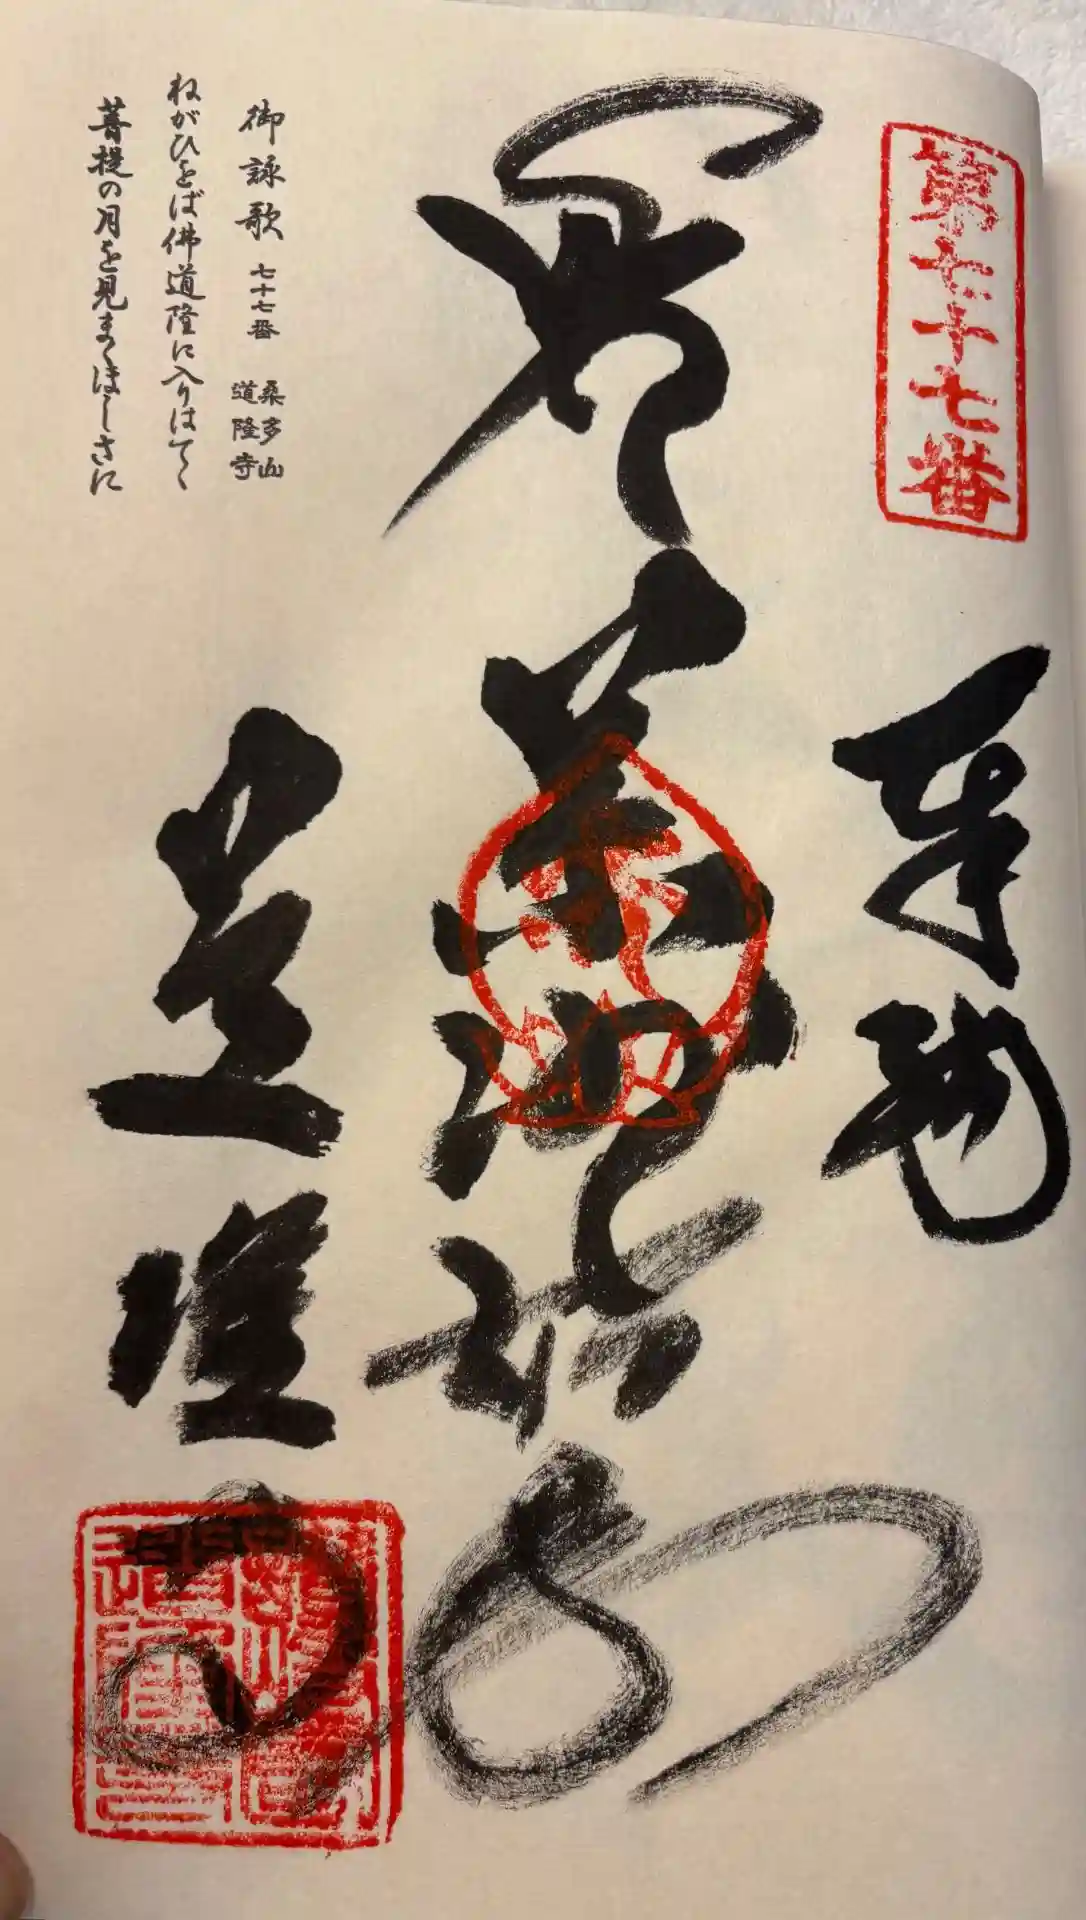 第七十七番
奉納
薬師如来
道隆寺
御詠歌 七十七番 桑多山 道隆寺
ねがひをば佛道隆に入りはてゝ
菩提の月を見まくほしさに